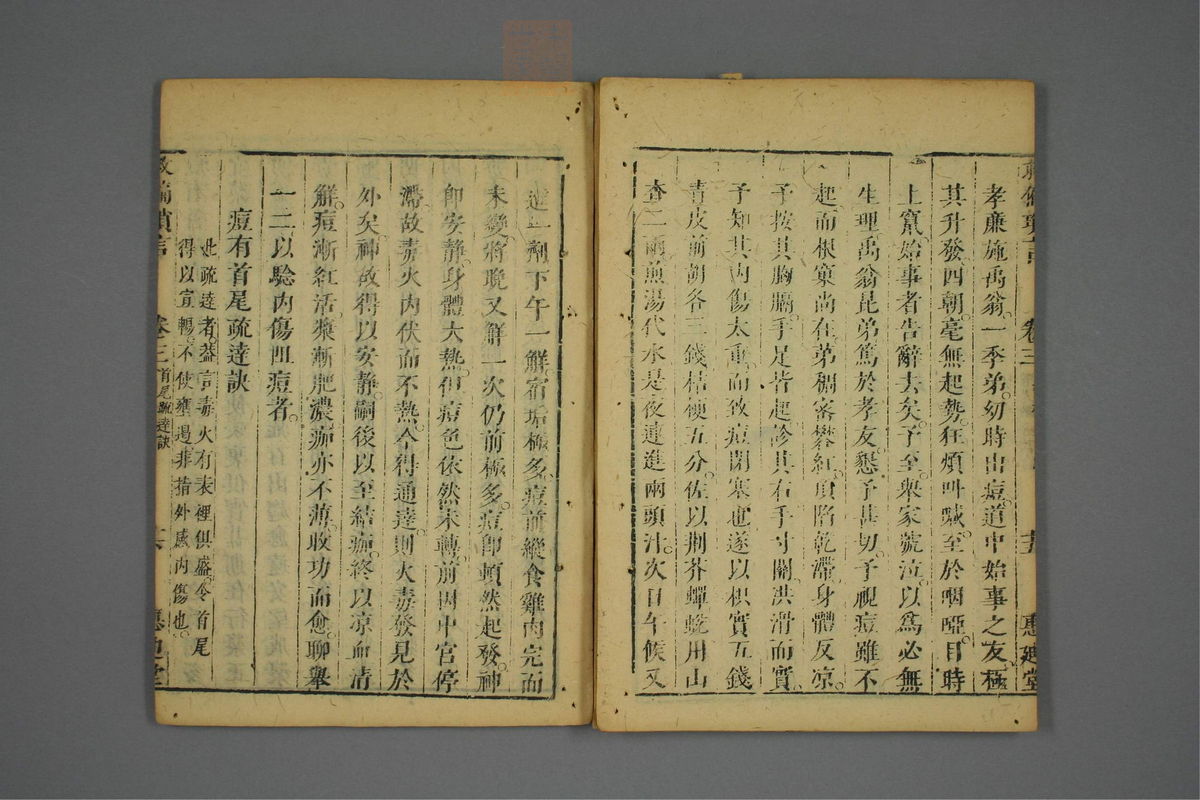 孝廉施禹翁。一季弟。幼時出痘。道中始事之友。極
其升發。四朝。毫無起勢。狂煩叫喊。至於咽啞。目時
上竄。始事者告辭去矣。予至。衆家號泣。以為必無
生理。禹翁昆弟。篤於孝友。懇予甚切。予視痘雖不
起。而根窠尚在。第稠密攀紅。頂陷乾滯。身體反凉。
予按其胸膈。手足皆趯。診其右手寸關。洪滑而實。
予知其內傷太重。而致痘閉塞也。遂以枳實五錢
青皮前胡各三錢桔梗五分。佐以荆芥蟬蛻。用山
查二兩煎湯代水。是夜連進兩頭汁。次日午候又
進一劑。下午一解。宿垢極多。痘前縱食雞肉。完而
未變。將晚又解一次。仍前極多。痘即頓然起發。神
即安靜。身體大熱。但痘色依然未轉。前因中宮停
滯。故毒火內伏而不熱。今得通達。則火毒發見於
外矣。神故得以安靜。嗣後以至結痂。終以凉血清
解。痘漸紅活。漿漸肥濃。痂亦不薄。收功而愈。聊舉
一二。以驗內傷阻痘者。
痘有首尾疏達訣
此疏達者。葢言毒火有表裡俱盛。令首尾
得以宣暢。不使壅遏。非指外感內傷也。
卷三
首尾疏達訣
卷三